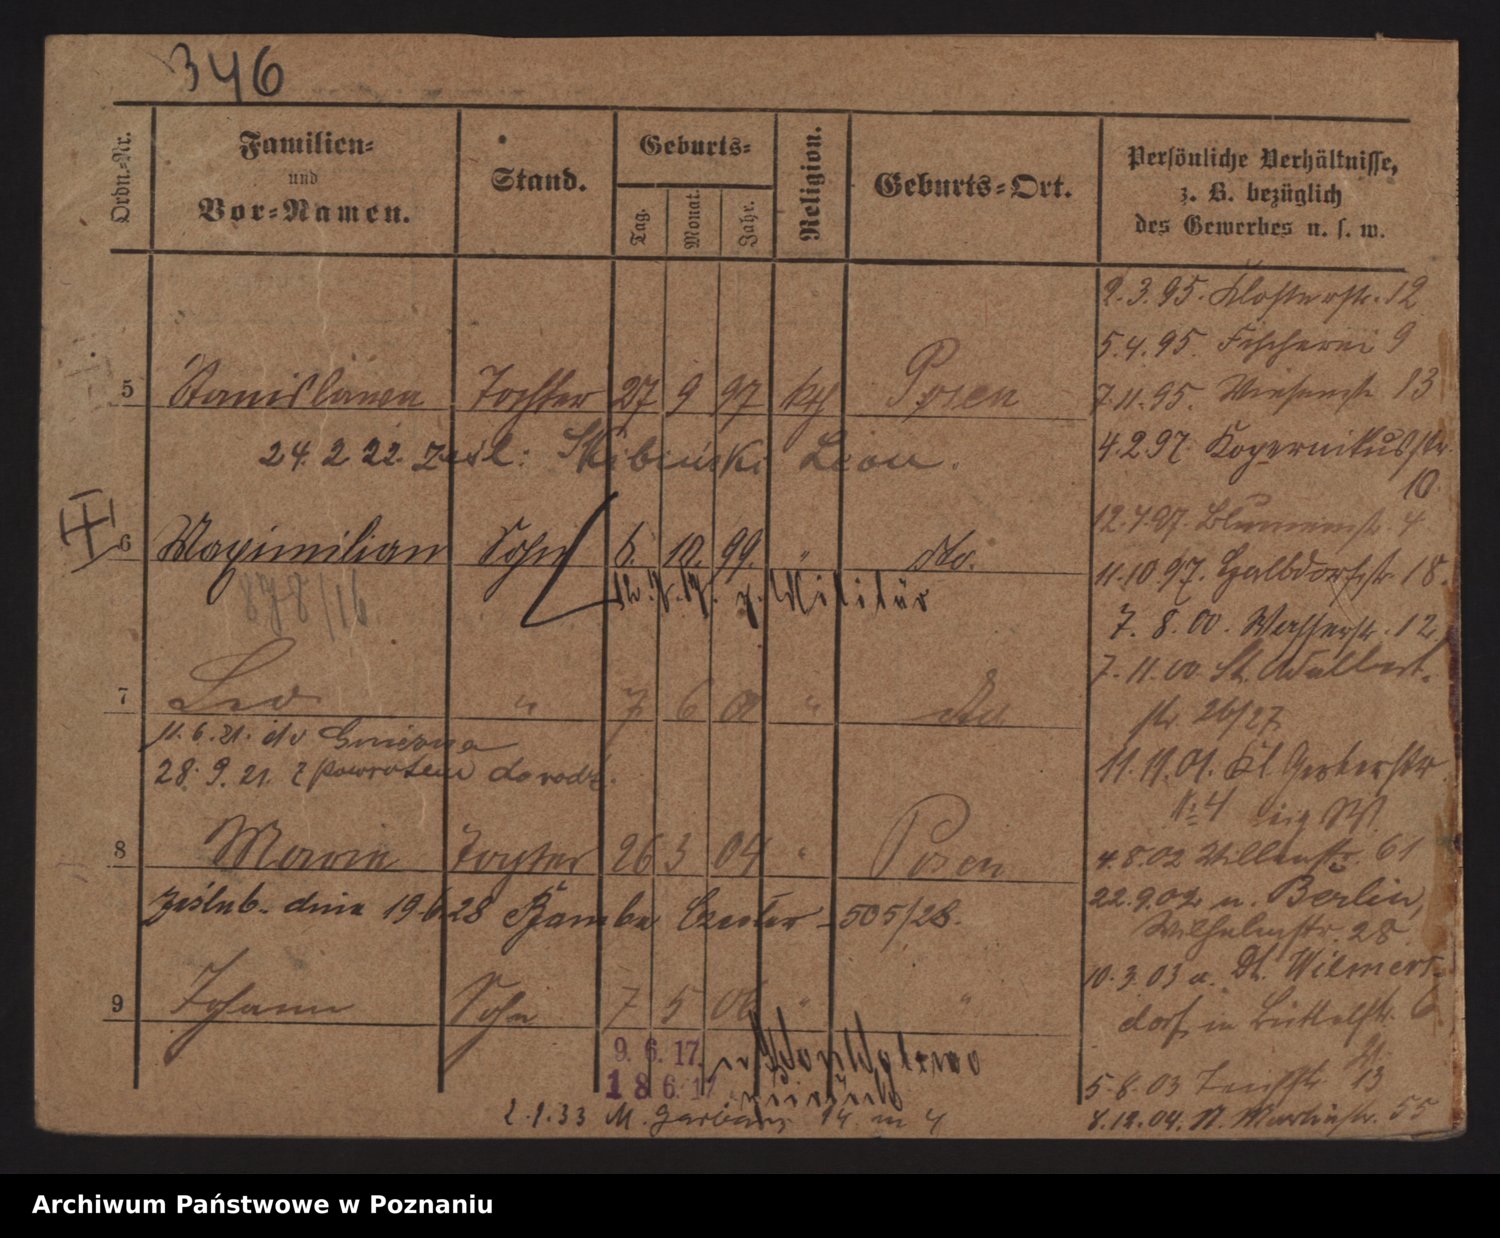 346
Ordn.-Nr.
Familien-
und
Vor-Namen.
Stand.
Geburts-
Tag.
Monat.
Jahr.
Religion.
Geburts-Ort.
Persönliche Verhältnisse,
z. B. bezüglich
des Gewerbes u. s. w.
2.3.95. Klosterstr. 12
5.4.95. Fischerei 9
7.11.95. Wiesenstr 13
4.2.97. Kopernikusstr
10.
12.4.97. Blumenstr. 4
11.10.97. Halbdorfstr. 18.
7. 8. 00. Wasserstr. 12
7. 11. 00 St. Adalbert.
str 26/27
11. 11. 01. Kl. Gerberstr
No 4
4.8.02 61
22.9.02 n. Berlin,
Wilhelmstr. 28
10.3.03 a. Dt. Wilmers-
dorf, in 6
5.8.03 13
8.12.04. St. Martinstr. 55
5 Stanislawa Tochter 27 9 97 kth Posen
24. 2 22. zaśl: Skibiński Leon.
6 Maximilian Sohn 6. 10. 99. " do.
878/16
z. Militär
7 Leo " 7 6 00 " do
11. 6. 21. do Gniezna
28. 9. 21. z powrotem do rodz.
8 Maria Tochter 26 3 04 " Posen
Zaślub. dnia 19.6.28 - 505/28.
9 Johann Sohn 7 5 06 " "
9. 6. 17.
18 6. 17
2.1.33 M. Garbary 14 m 4
Archiwum Państwowe w Poznaniu